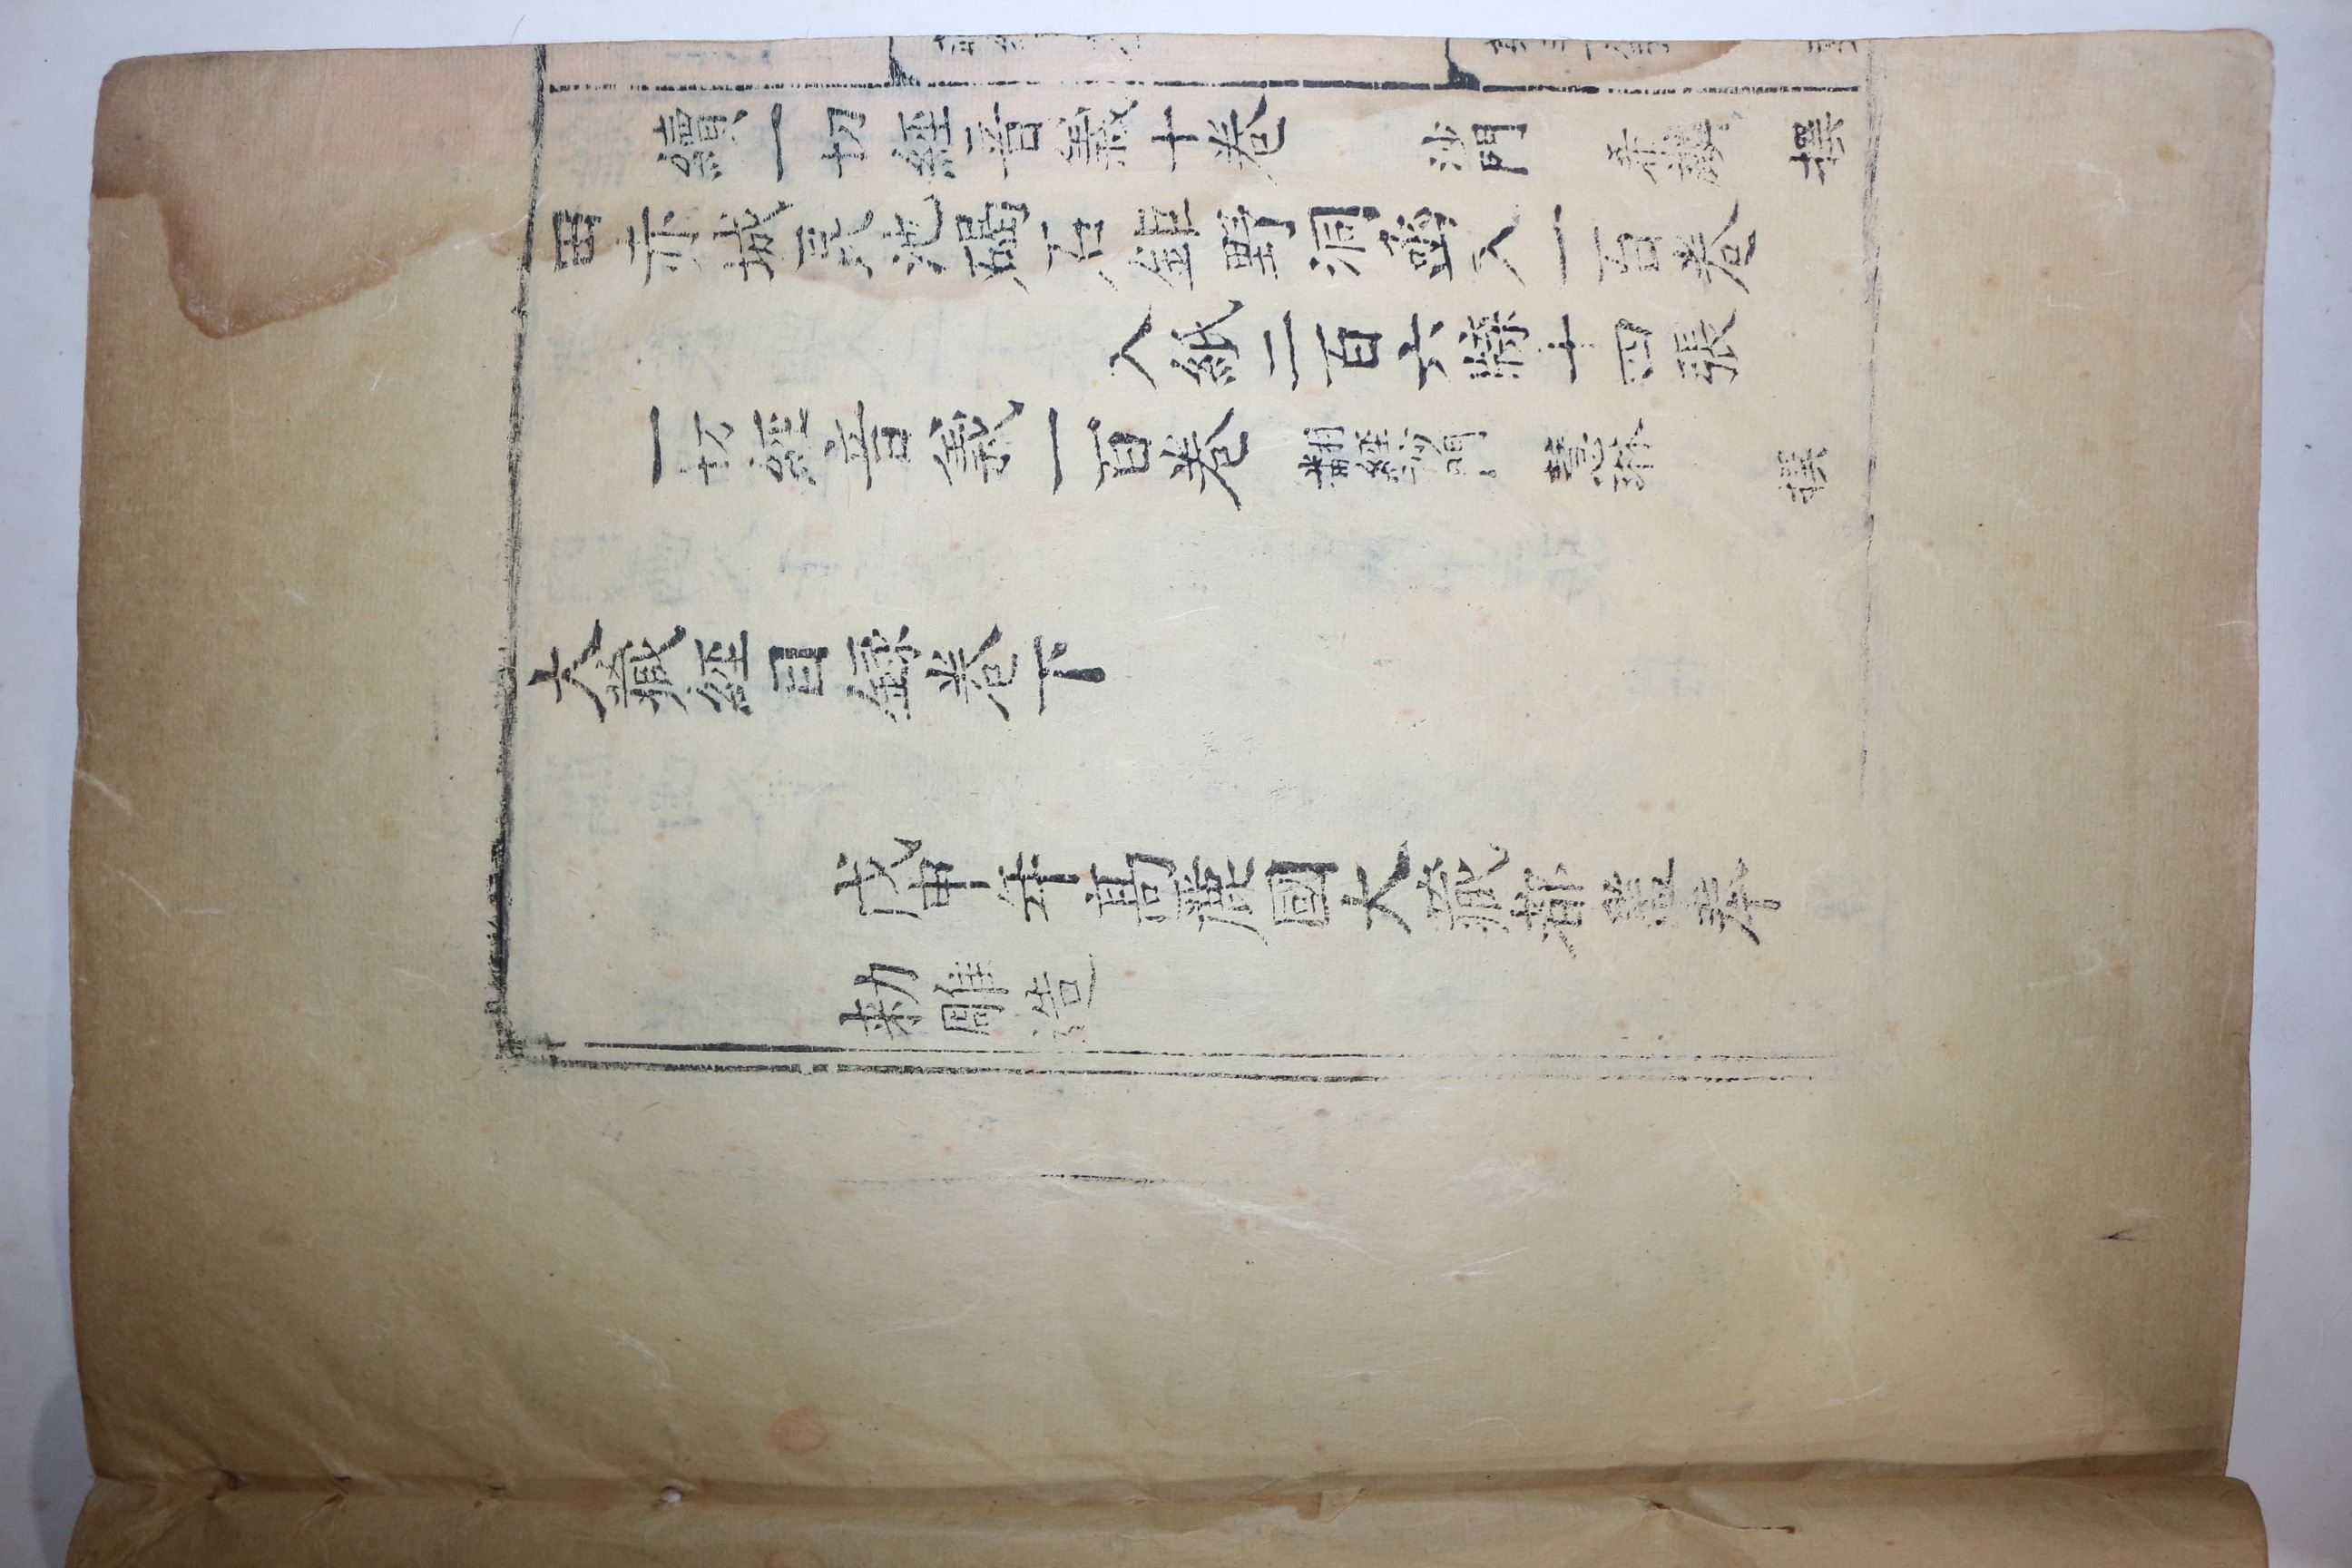 續一切經音義十卷 沙門 希麟 撰
田赤城昆池碣石鉅野洞凾入一百卷
入紙二百六牒十四張
一切經音義一百卷 翻經沙門 慧琳 撰
大藏經目録卷下
戊申年髙麗國大藏都監奉
勑雕造